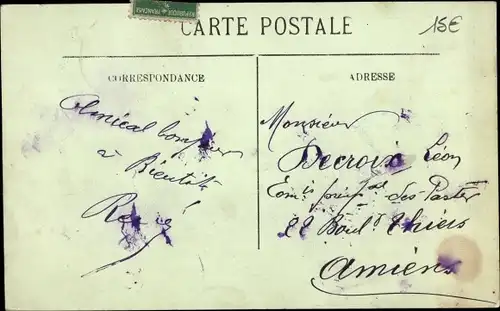 RÉPUBLIQUE FRANÇAISE
CARTE POSTALE
15€
CORRESPONDANCE
ADRESSE
Amical bonjour
à Bientôt
René
Monsieur
Decroix Léon
Com.is princ.pal des Postes
22 Boul.d Thiers
Amiens